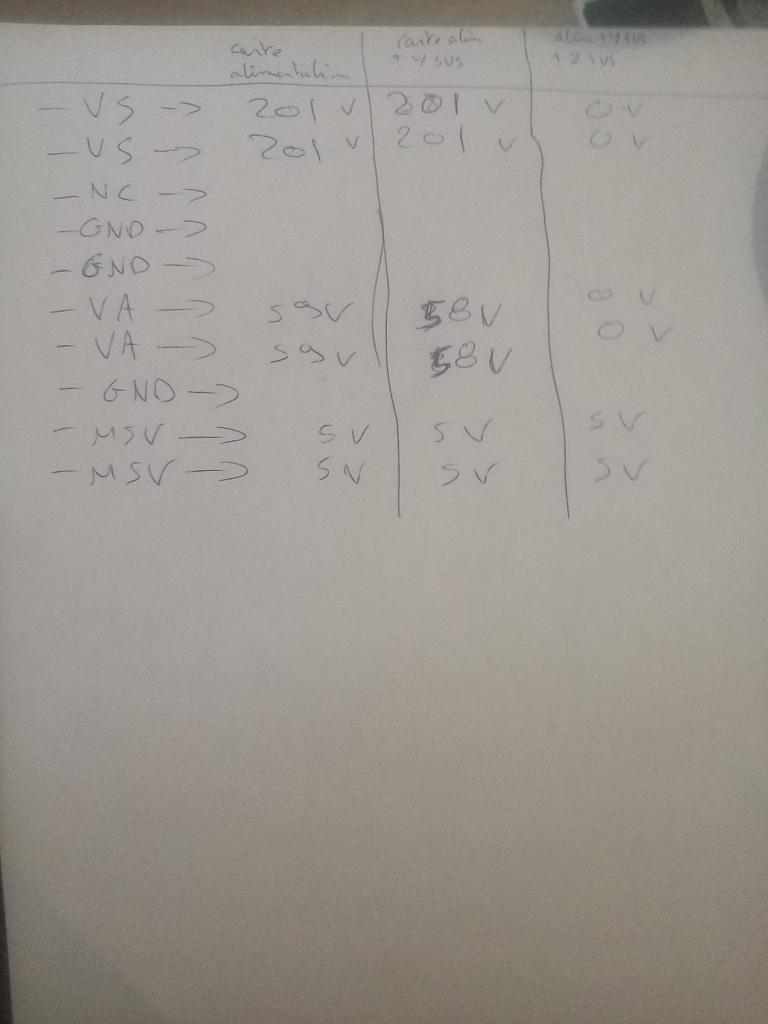 carte carte alim alim + Y SUS
alimentation + Y SUS + Z SUS
- VS -> 201 V 201 V 0 V
- VS -> 201 V 201 V 0 V
- NC ->
- GND ->
- GND ->
- VA -> 59V 58V 0 V
- VA -> 59V 58V 0 V
- GND ->
- M5V -> 5V 5V 5V
- M5V -> 5V 5V 5V